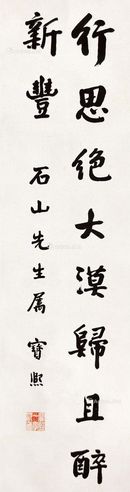 行思絶大漠歸且醉
新豐
石山先生属 寶熙